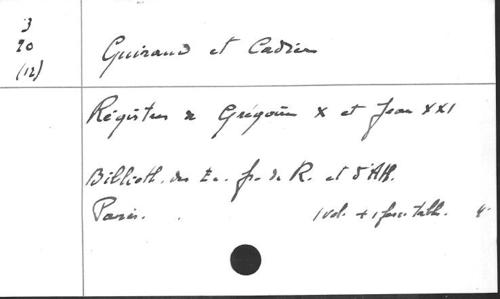 3
20
(12)
Guiraud et Cadier
Régistres de Grégoire X et Jean XXI
Billioth. des Ec. fr. de R. et d'Ath.
Paris. 1 vol. + 1 fasc. tabl. 4°